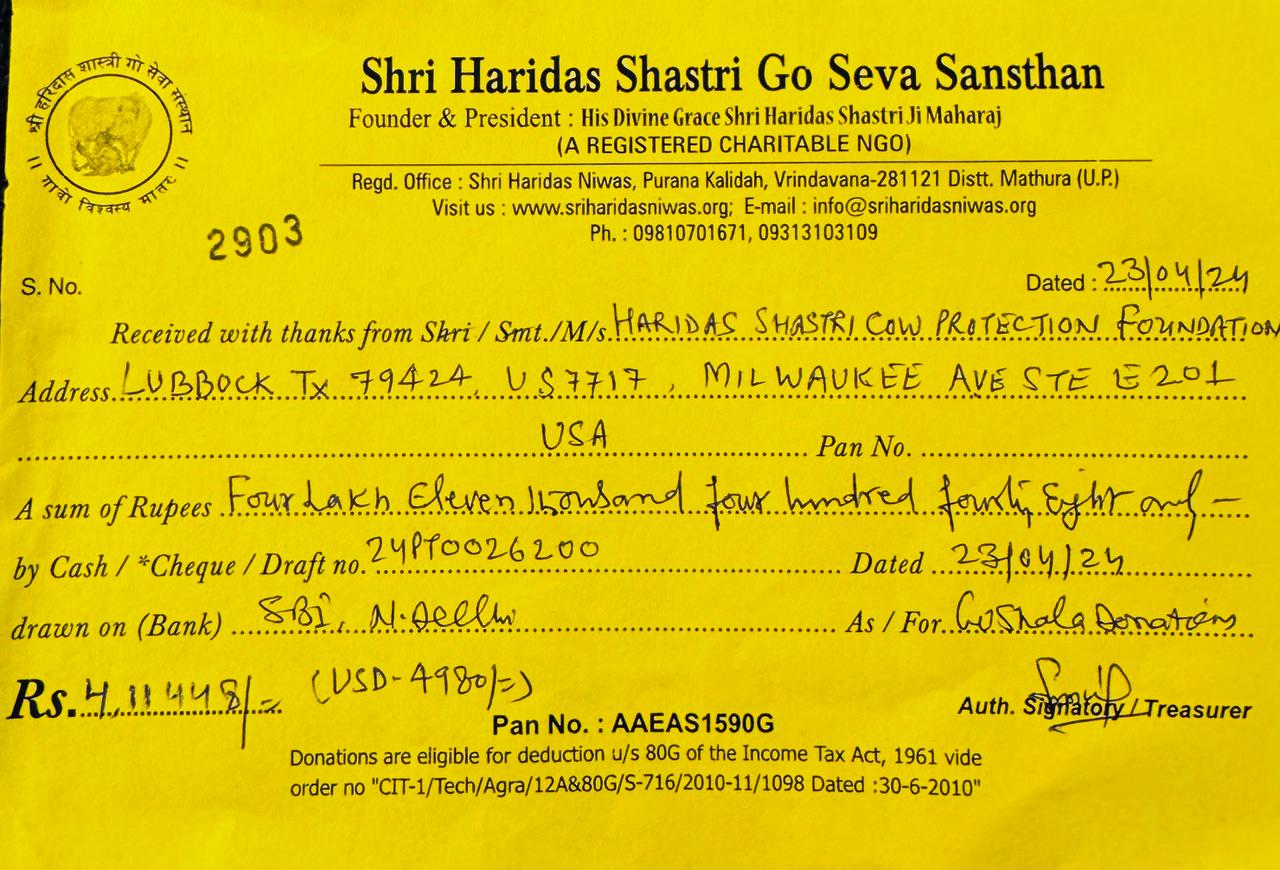 श्री हरिदास शास्त्री गो सेवा संस्थान
।। गावो विश्वस्य मातरः ।।
Shri Haridas Shastri Go Seva Sansthan
Founder & President : His Divine Grace Shri Haridas Shastri Ji Maharaj
(A REGISTERED CHARITABLE NGO)
Regd. Office : Shri Haridas Niwas, Purana Kalidah, Vrindavana-281121 Distt. Mathura (U.P.)
Visit us : www.sriharidasniwas.org; E-mail : info@sriharidasniwas.org
Ph. : 09810701671, 09313103109
2903
S. No.
Dated : 23/04/24
Received with thanks from Shri / Smt./M/s. HARIDAS SHASTRI COW PROTECTION FOUNDATION
Address. LUBBOCK Tx 79424, US7717, MILWAUKEE AVE STE E201
USA Pan No.
A sum of Rupees Four Lakh Eleven Thousand four hundred fourty Eight only -
by Cash / *Cheque / Draft no. 24PT0026200 Dated 23/04/24
drawn on (Bank) SBI, N. Delhi As / For. GoShala Donations
Rs. 4,11448/= (USD-4980/=)
Auth. Signatory / Treasurer
Pan No. : AAEAS1590G
Donations are eligible for deduction u/s 80G of the Income Tax Act, 1961 vide
order no "CIT-1/Tech/Agra/12A&80G/S-716/2010-11/1098 Dated :30-6-2010"